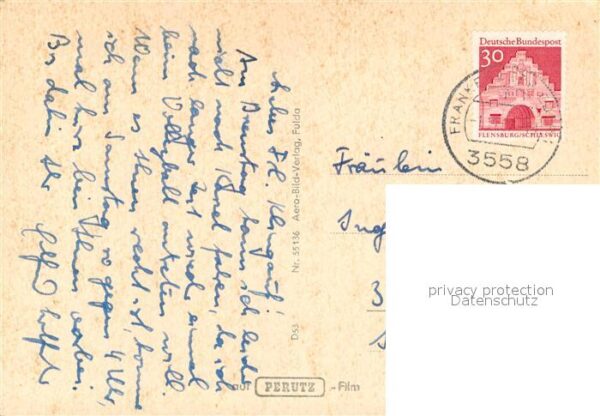 Liebes Frl. Klingauf!
Am Dienstag kann ich leider
nicht nach Kassel fahren, da ich
nach langer Zeit wieder einmal
beim Volleyball antreten will.
Wenn es Ihnen recht ist, komme
ich am Samstag so gegen 4 Uhr,
mal kurz bei Ihnen vorbei.
Bis dahin Ihr
Nr. 55136 Aero-Bild-Verlag, Fulda
D53
auf PERUTZ - Film
Deutsche Bundespost
30
FLENSBURG/SCHLESWIG
FRANKE
3558
Fräulein
Ing
3
privacy protection
Datenschutz